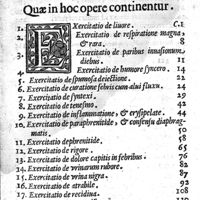 Quæ in hoc opere continentur.
1. Exercitatio de liuore. C.1
2. Exercitatio de respiratione magna, & rara. 8
3. Exercitatio de paribus inuasionum, diebus. 11
Exercitatio de humore syncero. 14
5. Exercitatio de spumosa deiectione. 21
6 Exercitatio de curatione febris cum alui fluxu. 24
7. Exercitatio de syntexi. 29
8. Exercitatio de tenesmo. 42
9. Exercitatio de inflammatione, & erysipelate. 44
10. Exercitatio de paraphrenitide, & consensu diaphragmatis. 50
11. Exercitatio de phrenitide. 58
12. Exercitatio de rigore. 65
13. Exercitatio de dolore capitis in febribus. 76
14. Exercitatio de vrinarum rubore. 82
15. Exercitatio de vrina nigra. 87
16. Exercitatio de atrabile. 92
17. Exercitatio de recidiua.